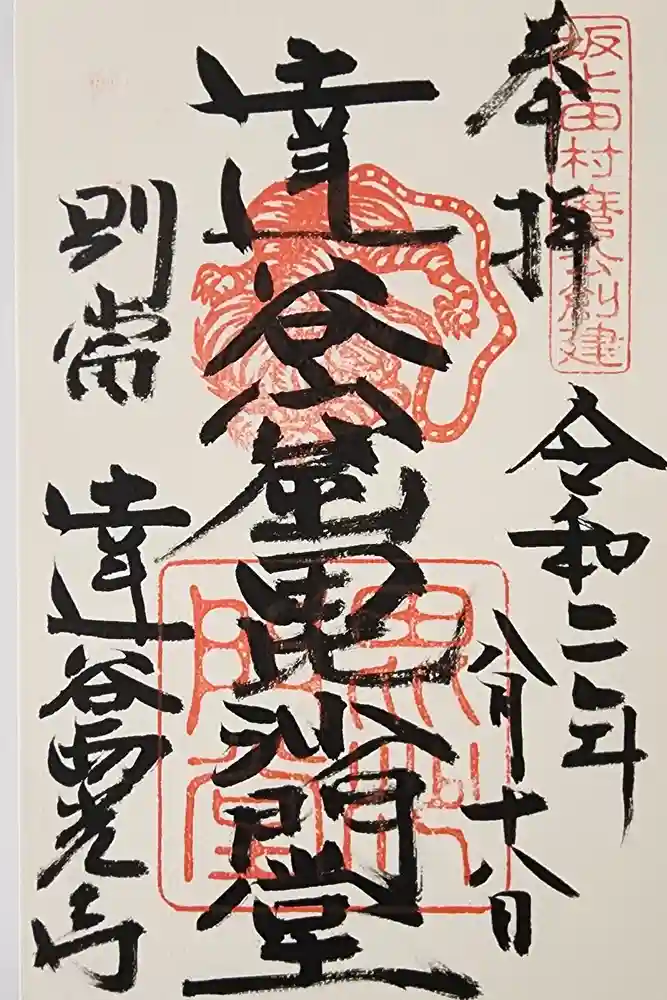 奉拝
坂上田村麿公創建
令和二年
八月十八日
達谷窟毘沙門堂
別當
達谷西光寺
毘沙門堂